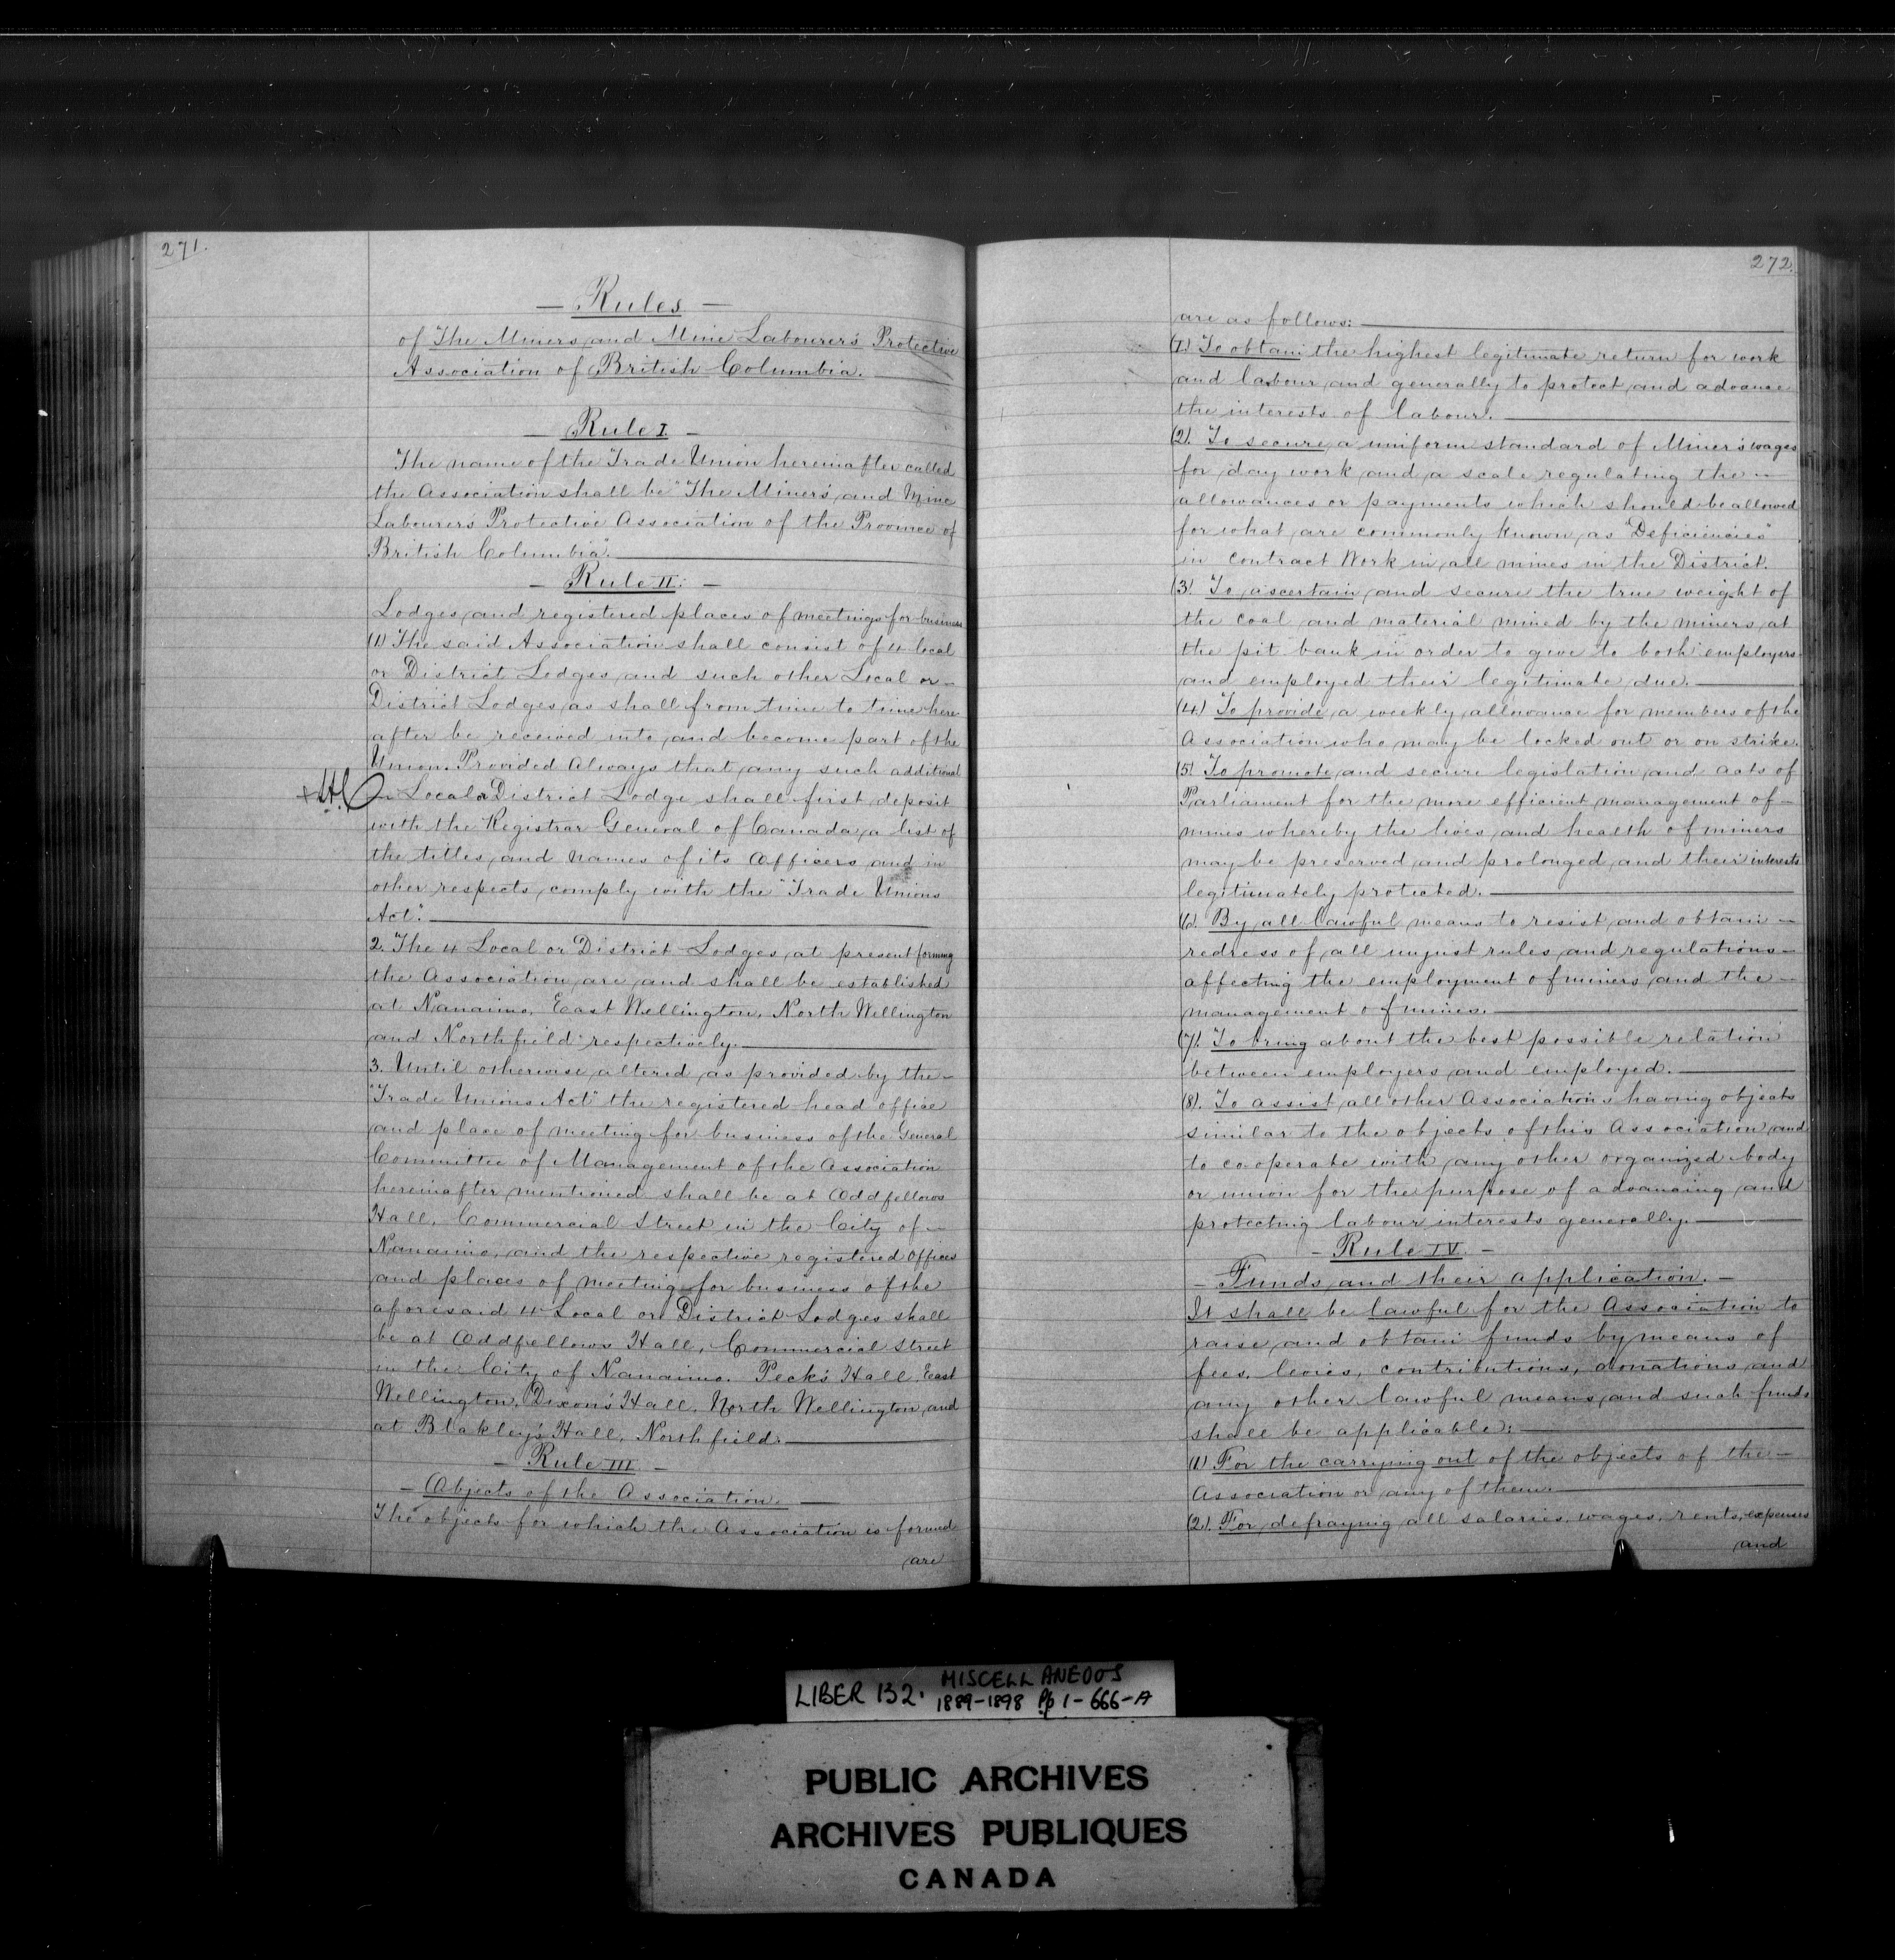 271.
— Rules —
of The Miners and Mine Labourer's Protective
Association of British Columbia.
— Rule I. —
The name of the Trade Union hereinafter called
the Association shall be "The Miner's and Mine
Labourers Protective Association of the Province of
British Columbia".
— Rule II. —
Lodges and registered places of meetings for business
(1) The said Association shall consist of 4 local
or District Lodges and such other Local or –
District Lodges as shall from time to time here
after be received into and become part of the
Union. Provided Always that any such additional
Local or District Lodge shall first deposit
with the Registrar General of Canada a list of
the titles and names of its Officers and in
other respects comply with the "Trade Unions
Act".
2. The 4 Local or District Lodges at present forming
the Association are and shall be established
at Nanaimo, East Wellington, North Wellington
and Northfield respectively.
3. Until otherwise altered as provided by the –
"Trade Unions Act" the registered head office
and place of meeting for business of the General
Committee of Management of the Association
hereinafter mentioned shall be at Oddfellows
Hall, Commercial Street in the City of –
Nanaimo, and the respective registered Offices
and places of meeting for business of the
aforesaid 4 Local or District Lodges shall
be at Oddfellows Hall, Commercial Street
in the City of Nanaimo. Peck's Hall, East
Wellington, Dixon's Hall, North Wellington and
at Blakley's Hall, Northfield.
— Rule III —
— Objects of the Association. —
The objects for which the Association is formed
are
272.
are as follows:
(1.) To obtain the highest legitimate return for work
and labour and generally to protect and advance
the interests of labour.
(2). To secure a uniform standard of Miner's wages
for day work and a scale regulating the –
allowances or payments which should be allowed
for what are commonly known as "Deficiencies"
in Contract Work in all mines in the District.
(3). To ascertain and secure the true weight of
the Coal and material mined by the miners at
the pit bank in order to give to both employers
and employed their legitimate due.
(4.) To provide a weekly allowance for members of the
Association who may be locked out or on strike.
(5). To promote and secure legislation and Acts of
Parliament for the more efficient management of –
mines whereby the lives and health of miners
may be preserved and prolonged and their interests
legitimately protected.
(6). By all lawful means to resist and obtain –
redress of all unjust rules and regulations –
affecting the employment of miners and the –
management of mines.
(7). To bring about the best possible relation
between employers and employed.
(8). To assist all other Associations having objects
similar to the objects of this Association and
to cooperate with any other organized body
or union for the purpose of advancing and
protecting labour interests generally.
— Rule IV. —
— Funds and their application. —
It shall be lawful for the Association to
raise and obtain funds by means of
fees, levies, contributions, donations and
any other lawful means and such funds
shall be applicable:
(1) For the carrying out of the objects of the –
Association or any of them.
(2). For defraying all salaries, wages, rents, expenses
and
LIBER 132. MISCELLANEOUS
1889-1898 Pp 1-666-A
PUBLIC ARCHIVES
ARCHIVES PUBLIQUES
CANADA